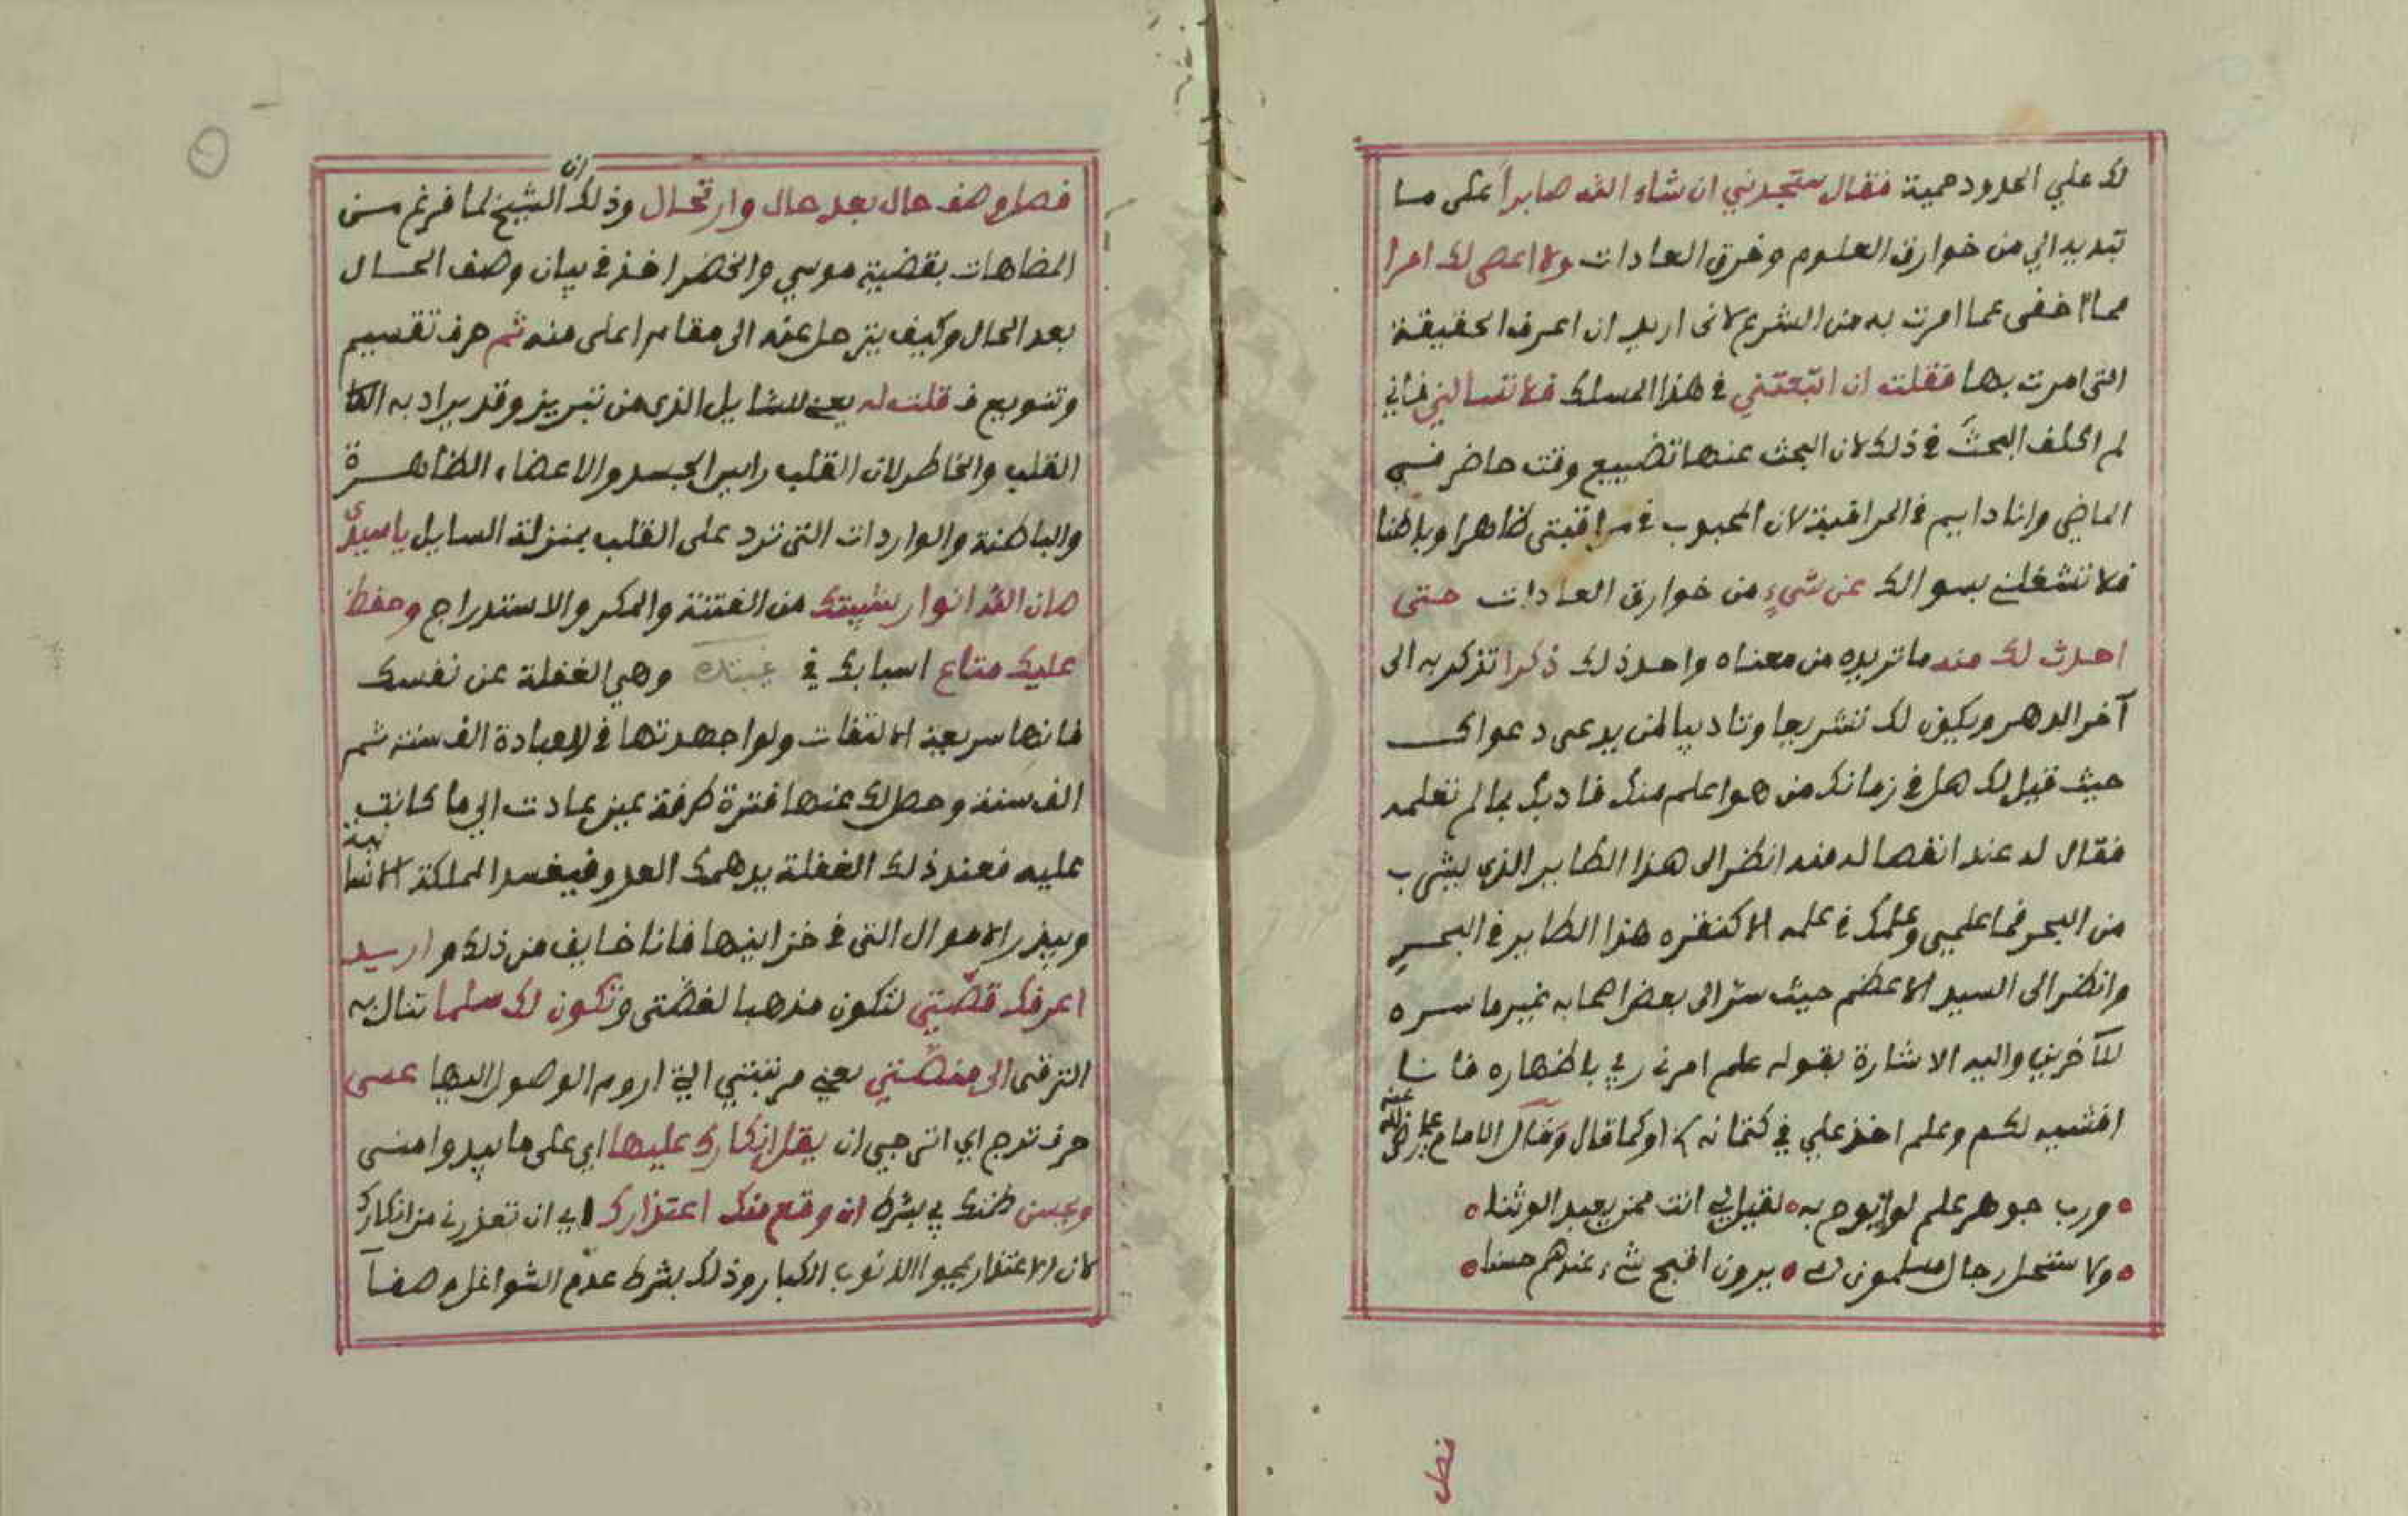 لك علي الحدود حمية فقال ستجدني ان شاء الله صابرا على ما
تبديه الي من خوارق العلوم وخرق العادات ولا اعصى لك امرا
مما اخفى عما امرت به من الشرع لانى اريد ان اعرف الحقيقة
التى امرت بها فقلت ان اتبعتني في هذا المسلك فلا تسالني فاني
لم اكلف البحث في ذلك لان البحث عنها تضييع وقت حاضر فسي
الماضي وانا دايم في المراقبة لان المحبوب في مراقبتى ظاهرا وباطنا
فلا تشغلني بسوالك عن شيء من خوارق العادات حتى
احدث لك منه ما تريده من معناه واحد ذلك ذكرا تذكر به الى
آخر الدهر ويكون لك تشريعا وتاديبا لمن يدعى دعواك
حيث قيل لك هل في زمانك من هو اعلم منك فادبك بما لم تعلمه
فقال له عند انفصاله منه انظر الى هذا الطاير الذي يشرب
من البحر فما علمي وعلمك في علمه الا كنقره هذا الطاير في البحر
وانظر الى السيد الاعظم حيث سر الى بعض اصحابه غير ما سره
للآخرين واليه الاشارة بقوله علم امرني ربي باظهاره فانا
افشيه لكم وعلم اخذ علي في كتمانه او كما قال وقال الامام علي رضي الله عنه
ورب جوهر علم لو ابوح به لقيل لي انت ممن يعبد الوثنا
ولا ستحل رجال مسلمون دمي يرون اقبح شيء عندهم حسنا
فصل
فصل وصف حال بعد حال وارتحال وذلك ان الشيخ لما فرغ من
المضاهات بقضية موسي والخضر اخذ في بيان وصف الحال
بعد الحال وكيف يترحل عنه الى مقام اعلى منه ثم حرف تقسيم
وتنويع ف قلت له يعني للسايل الذي من تبريز وقد يراد به
القلب والخاطر لان القلب راس الجسد والاعضاء الظاهرة
والباطنة والواردات التى ترد على القلب بمنزلة السايل يا سيدى
صان الله انوار شيبتك من الفتنة والمكر والاستدراج وحفظ
عليك متاع اسبابك في غيبتك وهي الغفلة عن نفسك
فانها سريعة الالتفات ولو اجهدتها في العبادة الف سنة ثم
الف سنة وحصل لك عنها فترة طرفة عين عادت الي ما كانت
عليه فعند ذلك الغفلة يدهمك العدو فيفسد المملكة الانسانية
ويبذر الاموال التى في خزاينها فانا خايف من ذلك واريد
اعرفك قصتي لتكون مذهبا لغصتى وتكون لك سلما تنال به
الترقى الى منصتي يعني مرتبتي التي اروم الوصول اليها عسى
حرف ترج اي اترجي ان يقل انكارك عليها اي على ما يبدوا منى
ويحسن ظنك بي بشرط ان وقع منك اعتذارك اي ان تعذرني من انكارك
لان الاعتذار يمحوا الذنوب الكبار وذلك بشرط عدم الشواغل وصفآ